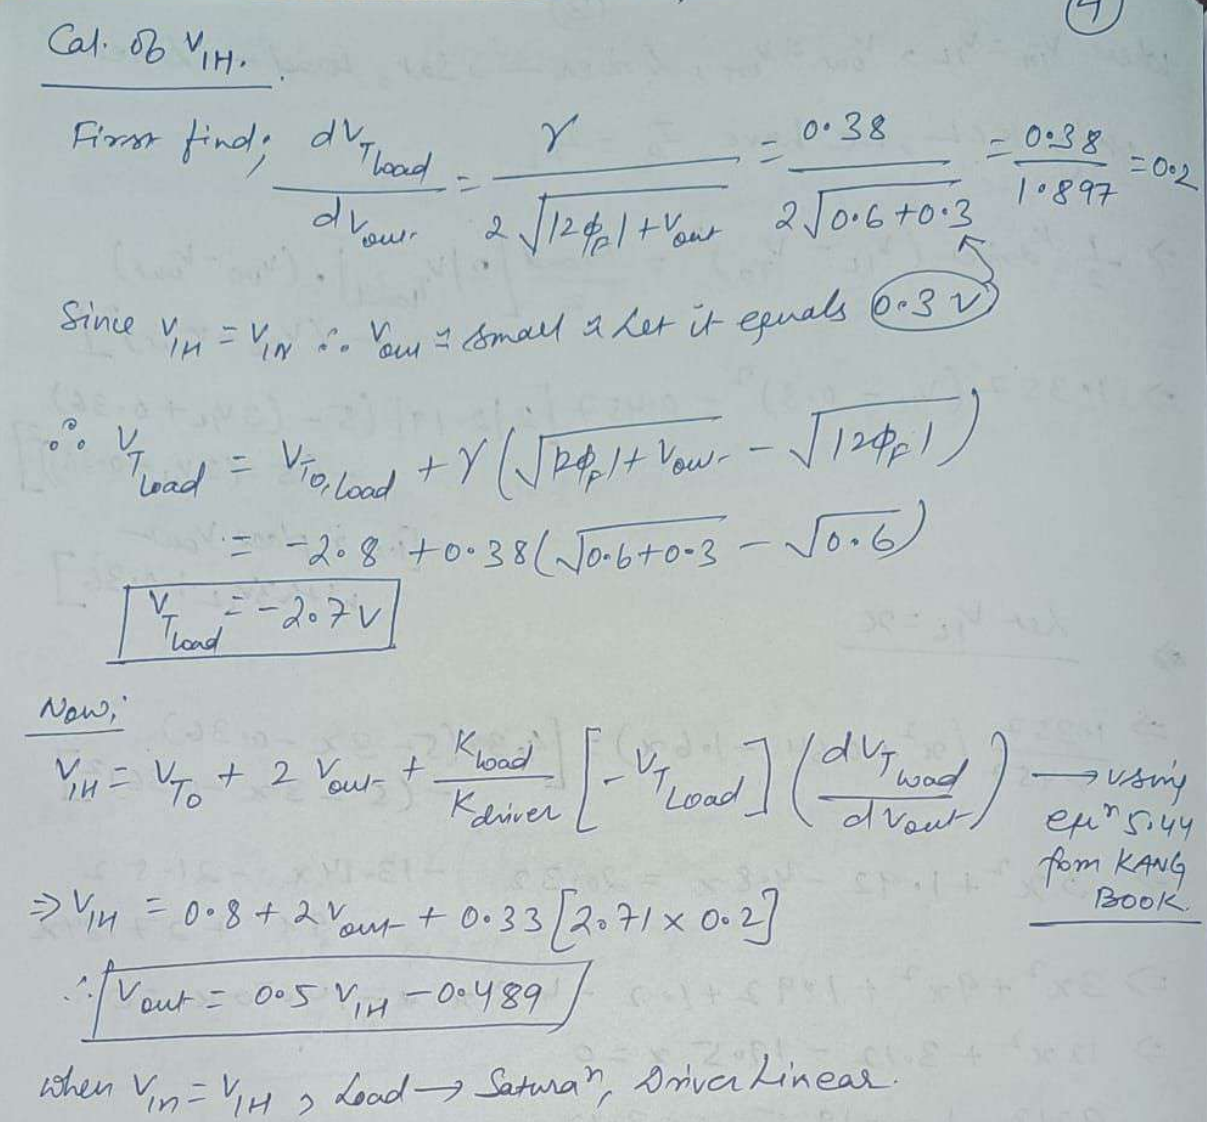 4
Cal. of V_IH.
First find; dV_T load / dV_out = γ / 2√(|2φ_F| + V_out) = 0.38 / 2√(0.6+0.3) = 0.38 / 1.897 = 0.2
Since V_IH = V_IN ∴ V_out = small & let it equals 0.3 V
∴ V_T load = V_T0,load + γ(√(|2φ_F| + V_out) - √|2φ_F|)
= -2.8 + 0.38(√(0.6+0.3) - √0.6)
V_T load = -2.7 V
Now;
V_IH = V_T0 + 2 V_out + K_load / K_driver [-V_T Load] (dV_T load / dV_out) → using eqⁿ 5.44 from KANG BOOK
⇒ V_IH = 0.8 + 2 V_out + 0.33 [2.71 × 0.2]
∴ V_out = 0.5 V_IH - 0.489
when V_in = V_IH, Load → Saturaⁿ, Driver Linear.